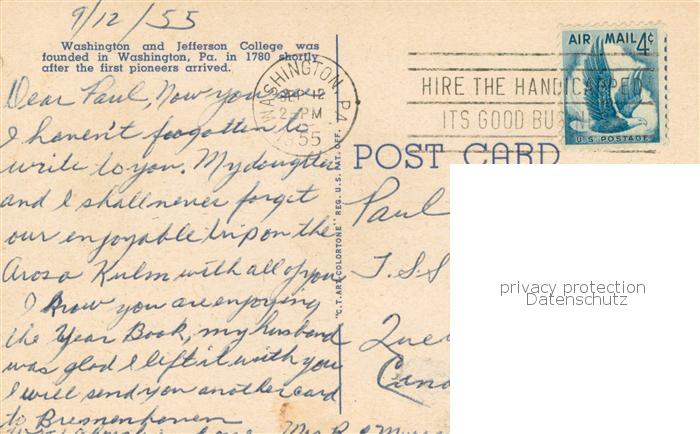 9/12/55
Washington and Jefferson College was
founded in Washington, Pa. in 1780 shortly
after the first pioneers arrived.
Dear Paul, Now you
I haven't forgotten to
write to you. My daughter
and I shall never forget
our enjoyable trip on the
Arosa Kulm with all of you
I know you are enjoying
the Year Book, my husband
was glad I left it with you
I will send you another card
to Bremenhaven
WASHINGTON, PA.
SEP 12
2 - PM
1955
HIRE THE HANDICAPPED
ITS GOOD BUSINESS
AIR MAIL 4¢
U.S. POSTAGE
POST CARD
"C.T. ART-COLORTONE" REG. U.S. PAT. OFF.
Paul
T.S.S
Que
Cana
privacy protection
Datenschutz
Mrs R